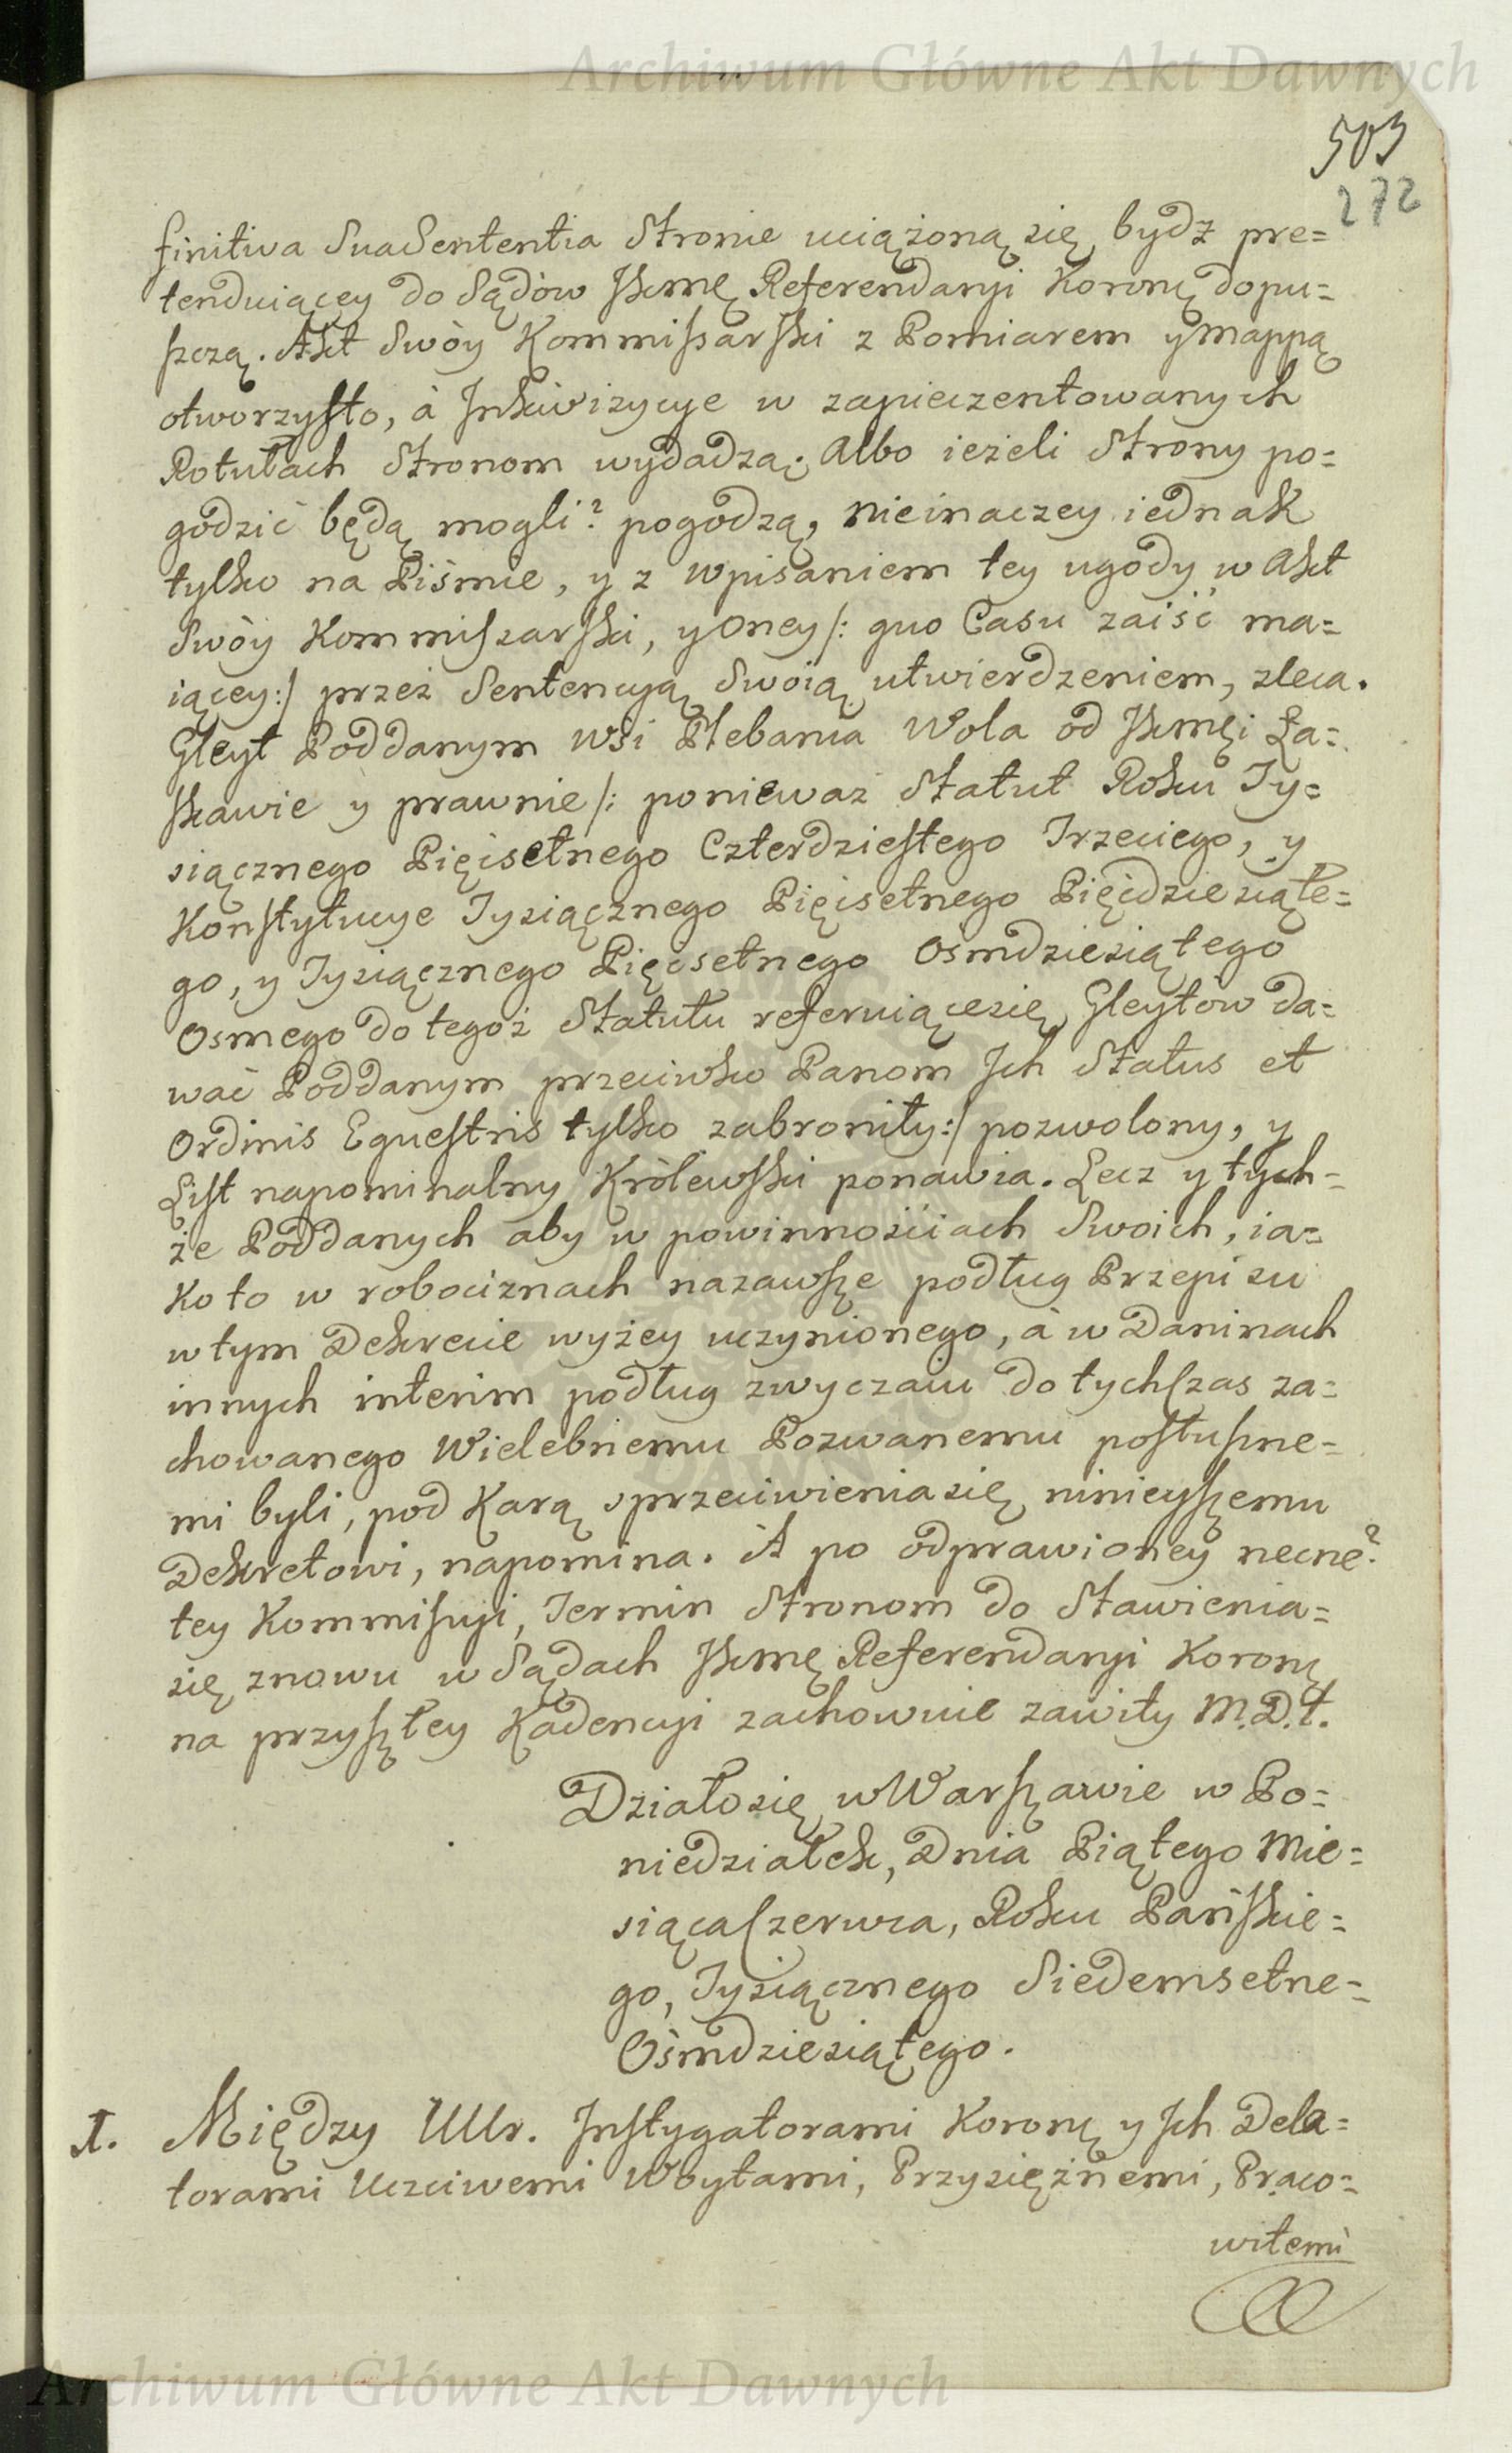 Archiwum Główne Akt Dawnych
503
272
finitiva Sua Sententia Stronie uciążoną się bydź pre=
tenduiącey do Sądów Jkmę Referendaryi Koronę dopu=
szczą. Akt Swòy Kommissarski z Pomiarem y Mappą
otworzysto, à Inkwizycye w zapieczentowanych
Rotułach Stronom wydadzą. Albo ieżeli Strony po=
godzić będą mogli? pogodzą, nieinaczey iednak
tylko na Piśmie, y z wpisaniem tey ugody w Akt
Swòy Kommiszarski, y Oney /: quo Casu zaiść ma=
iącey :/ przez Sentencyą Swoią utwierdzeniem, zleca.
Gleyt Poddanym Wsi Plebania Wola od Jkmęi Ła=
skawie y prawnie /: ponieważ Statut Roku Ty=
siącznego Pięćsetnego Czterdziestego Trzeciego, y
Konstytucye Tysiącznego Pięćsetnego Pięćdziesiąte=
go, y Tysiącznego Pięcsetnego Osmdziesiątego
Osmego do tegoż Statutu referuiące się Gleytów da=
wać Poddanym przeciwko Panom Ich Status et
Ordinis Equestris tylko zabroniły :/ pozwolony, y
List napominalny Królewski ponawia. Lecz y tych=
że Poddanych aby w powinnościach Swoich, ia=
ko to w robociznach nazawsze podług Przepisu
w tym Dekrecie wyżey uczynionego, à w Daninach
innych interim podług zwyczaiu do tychczas za=
chowanego Wielebnemu Pozwanemu posłuszne=
mi byli, pod Karą sprzeciwienia się ninieyszemu
Dekretowi, napomina. A po odprawioney necne?
tey Kommissyi, Termin Stronom do Stawienia=
się znowu w Sądach Jkmę Referendaryi Koronę
na przyszłey Kadencyi zachowuie zawity M.D.t.
Działo się w Warszawie w Po=
niedziałek, Dnia Piątego Mie=
siąca Czerwca, Roku Pańskie=
go, Tysiącznego Siedemsetne=
Ośmdziesiątego.
1. Między UUr. Instygatorami Koronę y Ich Dela=
torami Uczciwemi Woytami, Przysiężnemi, Praco=
witemi
Archiwum Główne Akt Dawnych